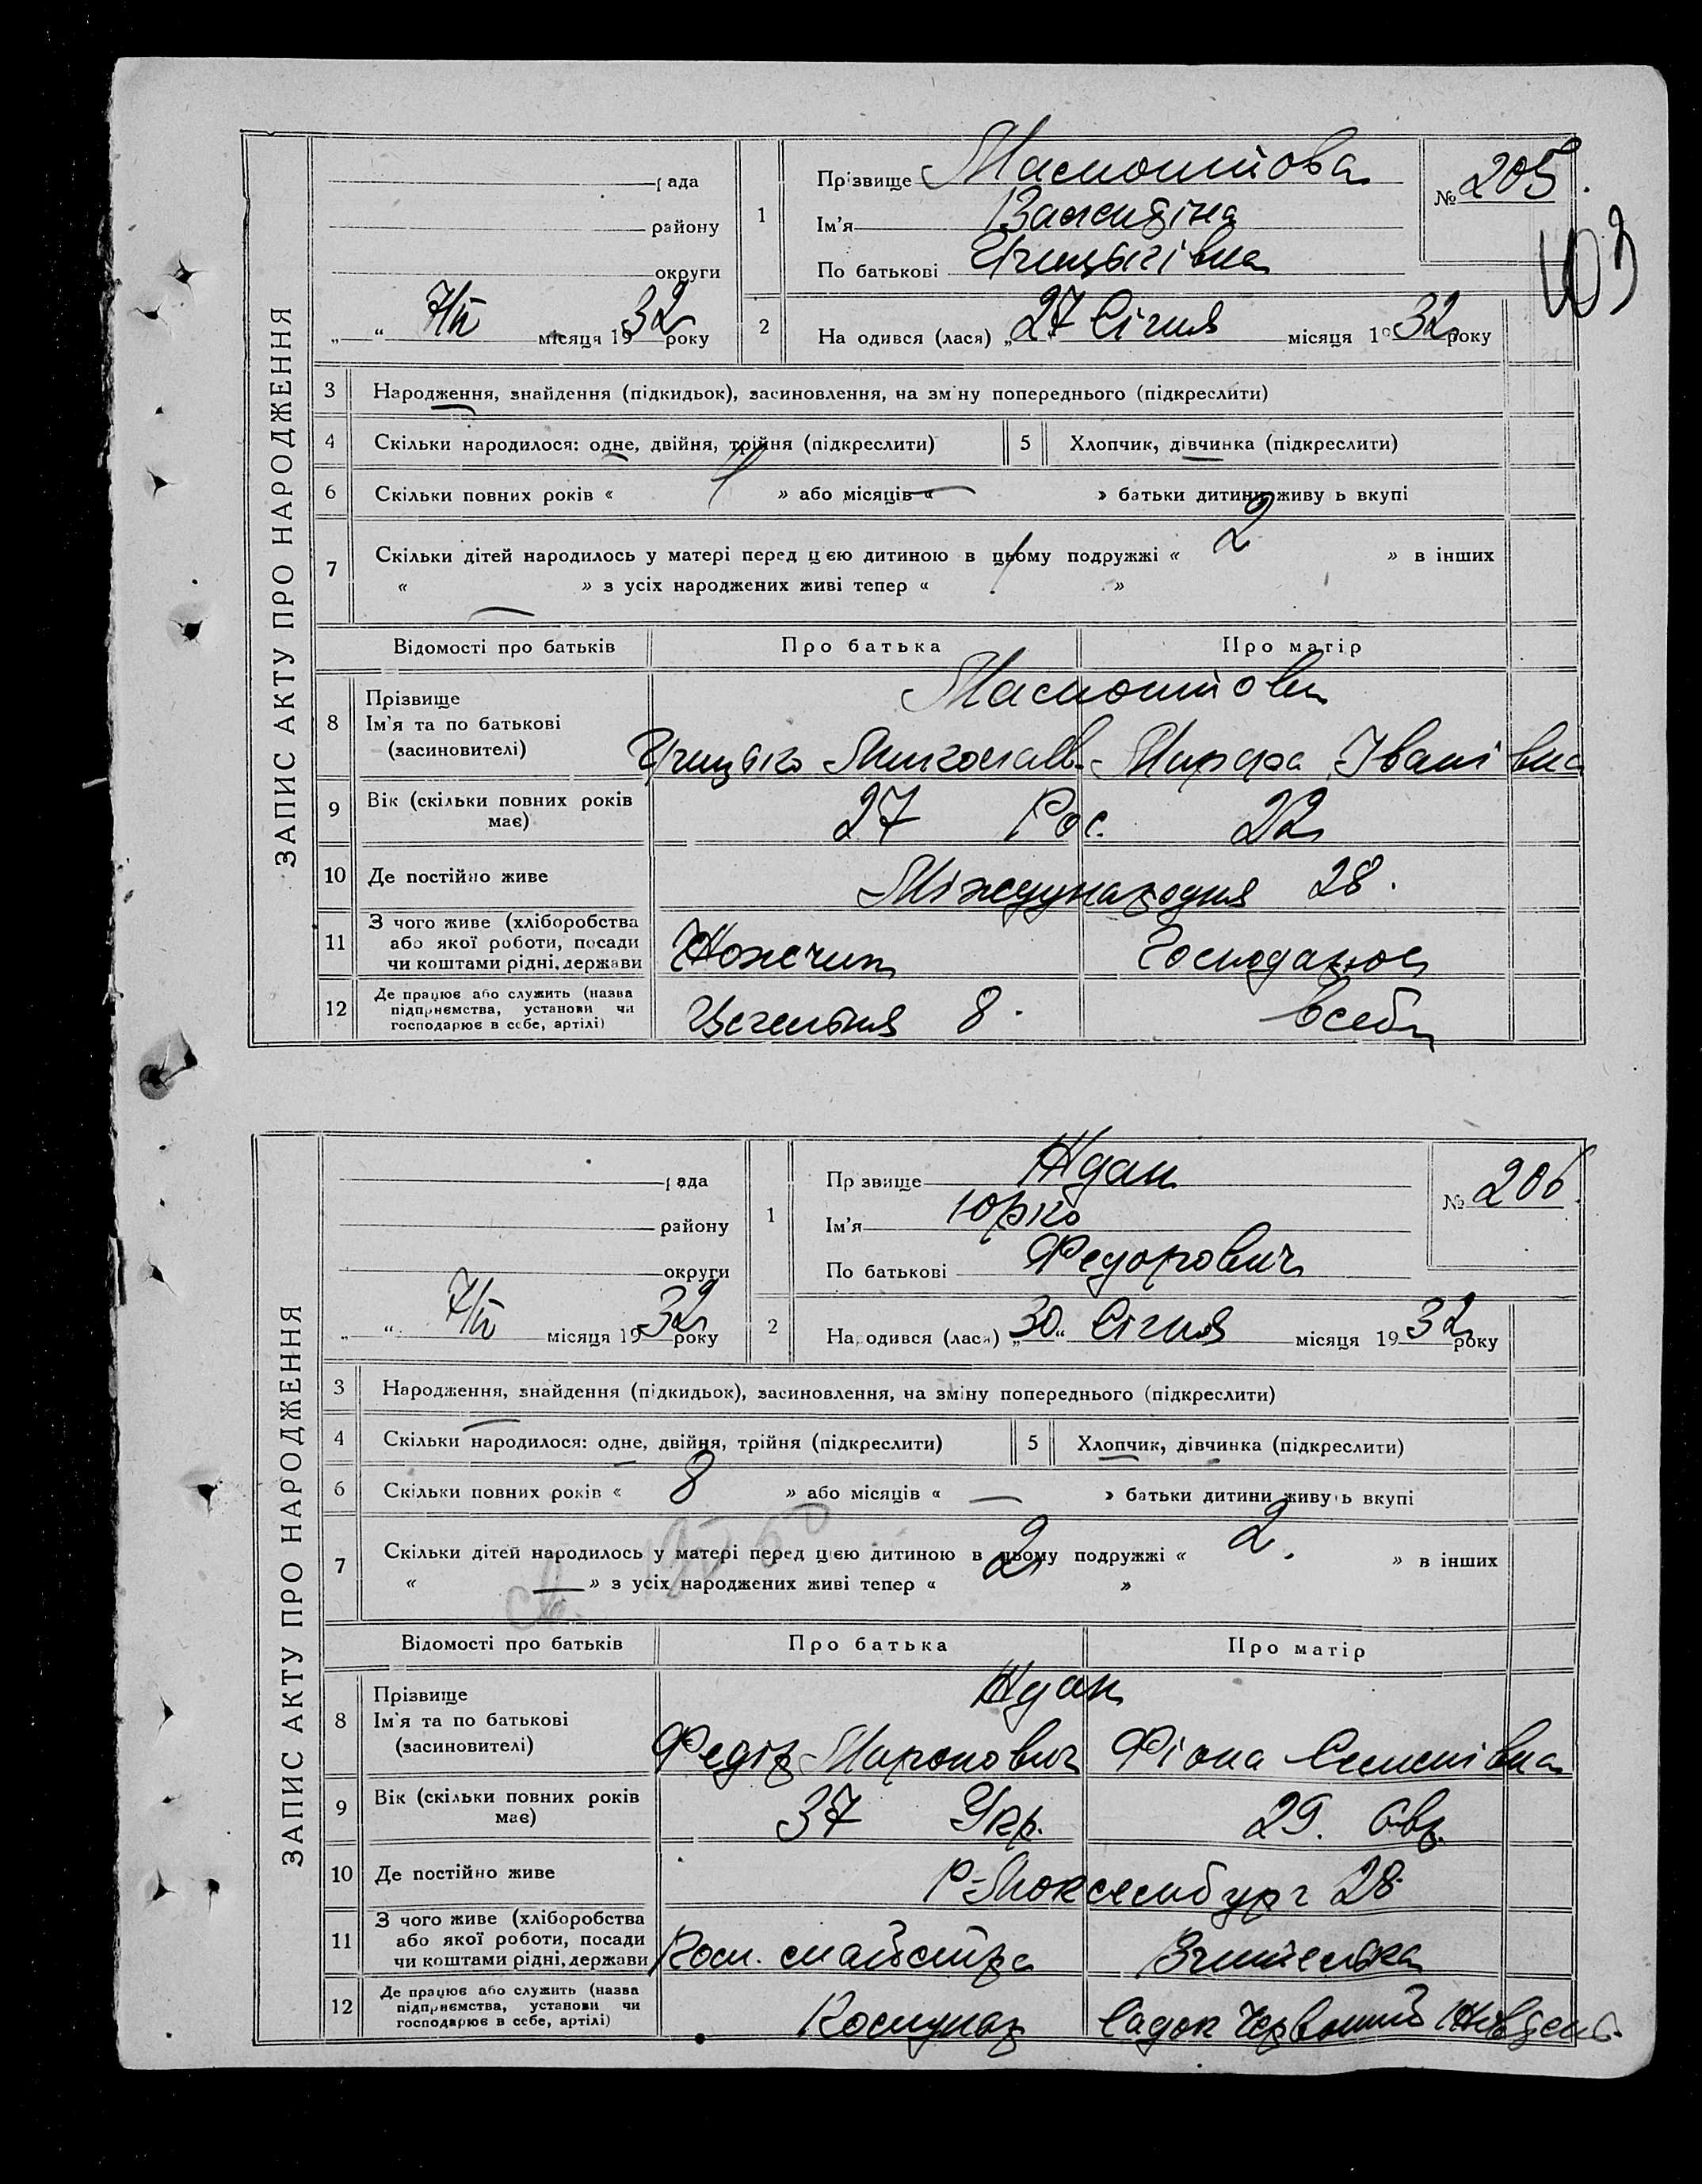 ЗАПИС АКТУ ПРО НАРОДЖЕННЯ
рада
району
округи
7/II місяця 1932 року
1
Прізвище
Ім'я Валентіна
По батькові
№ 205.
103
2
На одився (лася) „27 Січня місяця 1932 року
3 Народження, знайдення (підкидьок), засиновлення, на зм ну попереднього (підкреслити)
4 Скільки народилося: одне, двійня, трійня (підкреслити)
5 Хлопчик, дівчинка (підкреслити)
6 Скільки повних років « 1 » або місяців « — » батьки дитини живу ь вкупі
7 Скільки дітей народилось у матері перед цією дитиною в цьому подружжі « 2 » в інших
« — » з усіх народжених живі тепер « »
Відомості про батьків Про батька Про матір
8 Прізвище
Ім'я та по батькові
(засиновителі)
Марфа Іванівна
9 Вік (скільки повних років має) 27 Рос. 22
10 Де постійно живе Міждународня 28.
11 З чого живе (хліборобства
або якої роботи, посади
чи коштами рідні, держави
Господарює
12 Де працює або служить (назва
підприємства, установи чи
господарює в себе, артілі)
Цегельня 8. в себе
ЗАПИС АКТУ ПРО НАРОДЖЕННЯ
рада
району
округи
„ “ 7/II місяця 1932 року
1
Пр звище Ждан
Ім'я Юрко
По батькові Федорович
№ 206.
2
Народився (лася) „30“ Січня місяця 1932 року
3 Народження, знайдення (підкидьок), засиновлення, на зміну попереднього (підкреслити)
4 Скільки народилося: одне, двійня, трійня (підкреслити)
5 Хлопчик, дівчинка (підкреслити)
6 Скільки повних років « 8 » або місяців « — » батьки дитини живуть вкупі
7 Скільки дітей народилось у матері перед цією дитиною в цьому подружжі « 2. » в інших
« — » з усіх народжених живі тепер « 2 »
Відомості про батьків Про батька Про матір
8 Прізвище
Ім'я та по батькові
(засиновителі)
Ждан
Федір Миронович Фіона Семенівна
9 Вік (скільки повних років має) 37 Укр. 29. Євр.
10 Де постійно живе Р-Люксембург 28
11 З чого живе (хліборобства
або якої роботи, посади
чи коштами рідні, держави
Пом. майстра Вчителька
12 Де працює або служить (назва
підприємства, установи чи
господарює в себе, артілі)
Комунар Садок Червоний